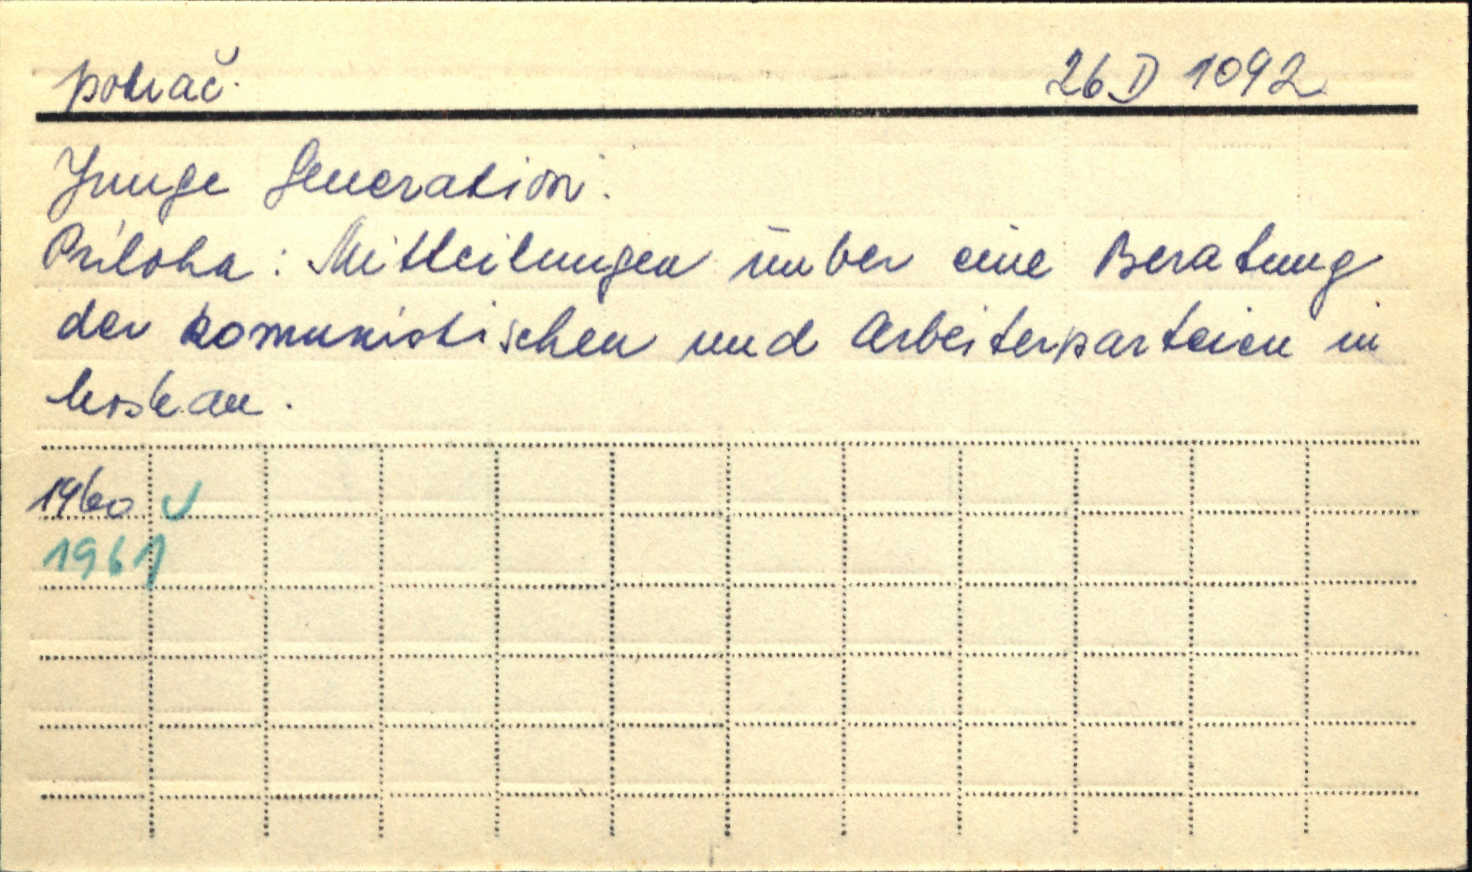 pokrač.
26 D 1092
Junge Generation.
Príloha: Mitteilungen über eine Beratung
der komunistischen und Arbeiterparteien in
Moskau.
1960
1961